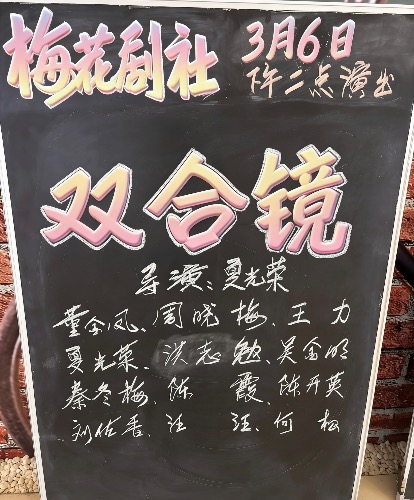 梅花剧社 3月6日
下午二点演出
双合镜
导演、夏光荣
董金凤、周晓梅、王力
夏光荣、洪志敏、吴金明
秦冬梅、陈霞、陈开英
刘佑香、汪汪、何松